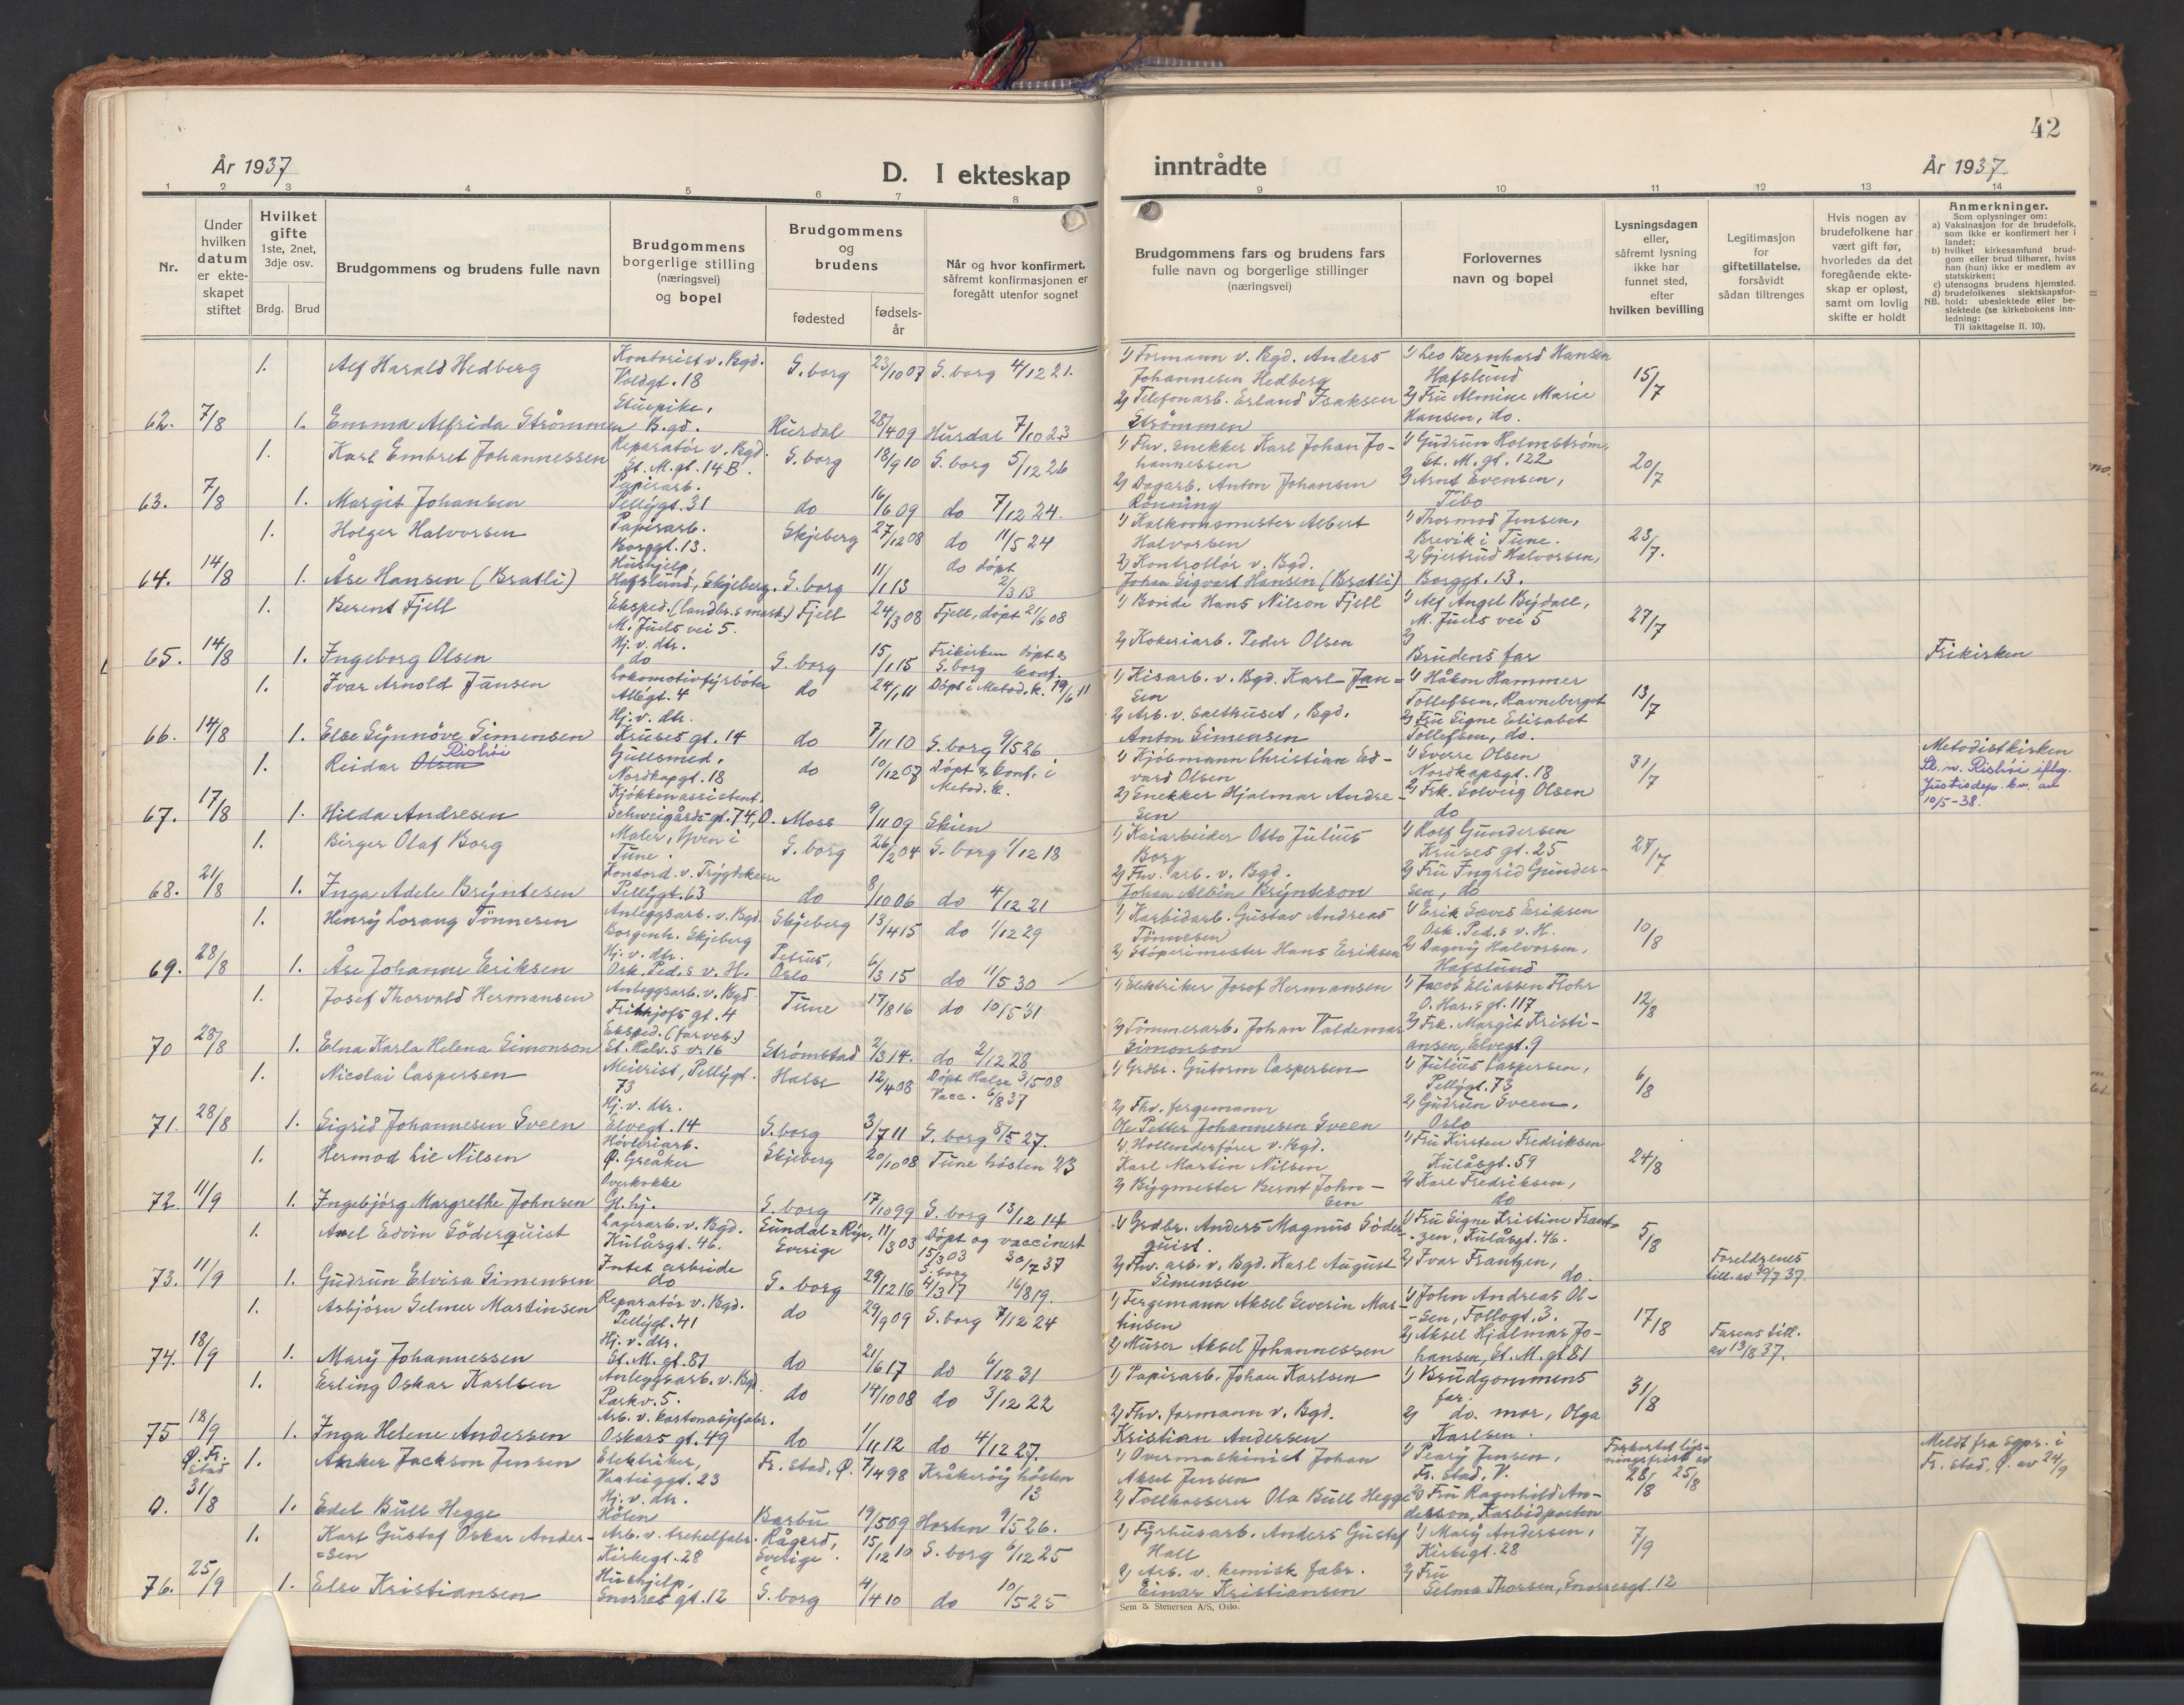 42
År 1937
D. I ekteskap inntrådte
År 1937.
1 2 3 4 5 6 7 8 9 10 11 12 13 14
Nr.
Under hvilken datum er ekteskapet stiftet
Hvilket gifte 1ste, 2net, 3dje osv.
Brdg. Brud
Brudgommens og brudens fulle navn
Brudgommens borgerlige stilling (næringsvei) og bopel
Brudgommens og brudens
fødested
fødsels-år
Når og hvor konfirmert, såfremt konfirmasjonen er foregått utenfor sognet
Brudgommens fars og brudens fars fulle navn og borgerlige stillinger (næringsvei)
Forlovernes navn og bopel
Lysningsdagen eller, såfremt lysning ikke har funnet sted, efter hvilken bevilling
Legitimasjon for giftetillatelse, forsåvidt sådan tiltrenges
Hvis nogen av brudefolkene har vært gift før, hvorledes da det foregående ekteskap er opløst, samt om lovlig skifte er holdt
Anmerkninger.
Som oplysninger om:
a) Vaksinasjon for de brudefolk, som ikke er konfirmert her i landet;
b) hvilket kirkesamfund brudgom eller brud tilhører, hviss han (hun) ikke er medlem av statskirken;
c) utensogns brudens hjemsted.
d) brudefolkenes slektskapsforhold: ubeslektede eller beslektede (se kirkebokens innledning:
NB.
Til iakttagelse II. 10).
1. Alf Harald Hedberg Kontorist v. Bgd. Voldgt. 18 S.borg 23/10 07 S.borg 4/12 21. 1) Formann v. Bgd. Anders Johannesen Hedberg 1) Leo Bernhard Hansen Hafslund 15/7
62. 7/8 1. Emma Alfrida Strømmen Stuepike, B.gd. Hurdal 28/4 09 Hurdal 7/10 23 2) Telefonarb. Erland Isaksen Strømmen 2) Fru Almine Marie Hansen, do.
1. Karl Embret Johannessen Reparatør v. Bgd. St. M. gt. 14 B. S.borg 18/9 10 S.borg 5/12 26 1) Fhv. snekker Karl Johan Johannessen 1) Gudrun Holmstrøm, St. M. gt. 122 20/7
63. 7/8 1. Margit Johansen Papirarb. Pellygt. 31 do 16/6 09 do 7/12 24. 2) Dagarb. Anton Johansen Rönning 2) Arnt Evensen, Tibo
1. Holger Halvorsen Papirarb. Borggt. 13. Skjeberg 27/12 08 do 11/5 24 1) Kalkovnsmester Albert Halvorsen 1) Thormod Jensen, Brevik i Tune. 23/7.
64. 14/8 1. Åse Hansen (Bratli) Hushjelp, Hafslund, Skjeberg. S.borg 11/1 13 do døpt 2/3 13 2) Kontrollør v. Bgd. Johan Sigvart Hansen (Bratli) 2) Gjertrud Halvorsen, Borggt. 13.
1. Berent Fjell Eksped. (landbr.s mask.) M. Juels vei 5. Fjell 24/3 08 Fjell, døpt 21/6 08 1) Bonde Hans Nilson Fjell 1) Alf Angel Bydall, M. Juels vei 5 27/7
65. 14/8 1. Ingeborg Olsen Hj. v. dtr. do S.borg 15/1 15 Frikirken døpt & S.borg konf. 2) Kokeriarb. Peder Olsen 2) Brudens far Frikirken
1. Ivar Arnold Jansen Lokomotivfyrbøter Allégt. 4 do 24/1 11 Døpt i Metod. k. 19/6 11 1) Kisarb. v. Bgd. Karl Jansen 1) Håkon Hammer Tollefsen, Ravneberget 13/7
66. 14/8 1. Else Synnöve Simensen Hj. v. dtr. Kruses gt. 14 do 7/11 10 S.borg 9/5 26 2) Arb. v. Salthuset, Bgd. Anton Simensen 2) Fru Signe Elisabet Tollefsen, do.
1. Reidar Olsen Rishöi Gullsmed, Nordkapgt. 18 do 10/12 07 Døpt & konf. i Metod. k. 1) Kjöbmann Christian Edvard Olsen 1) Sverre Olsen Nordkapsgt. 18 31/7 Metodistkirken Sl. n. Rishöi iflg. Justisdep. bv. av 10/5-38.
67. 17/8 1. Hilda Andresen Kjøkkenassistent. Schweigårds gt. 74, O. Moss 9/11 09 Skien 2) Snekker Hjalmar Andresen 2) Frk. Solveig Olsen do
1. Birger Olaf Borg Maler, Yven i Tune. S.borg 26/2 04 S.borg 1/12 18 1) Kaiarbeider Otto Julius Borg 1) Rolf Gundersen Kruses gt. 25 27/7
68. 21/8 1. Inga Adele Bryntesen Kontord. v. Trygdekassen Pellygt. 63 do 8/10 06 do 4/12 21 2) Fhv. arb. v. Bgd. Johan Albin Brynteson 2) Fru Ingrid Gundersen, do
1. Henry Lorang Tönnesen Anleggsarb. v. Bgd. Borgenh. Skjeberg Skjeberg 13/4 15 do 1/12 29 1) Karbidarb. Gustav Andreas Tönnesen 1) Erik Sæves Eriksen Osk. Ped.s v. H. 10/8
69. 28/8 1. Åse Johanne Eriksen Hj. v. dtr. Osk. Ped.s v. H. Petrus, Oslo 6/3 15 do 11/5 30 2) Støperimester Hans Eriksen 2) Dagny Halvorsen, Hafslund
1. Josef Thorvald Hermansen Anleggsarb. v. Bgd. Frithjofs gt. 4 Tune 17/8 16 do 10/5 31 1) Elektriker Josef Hermansen 1) Jacob Eliassen Flohr O. Har.s gt. 117 12/8
70 28/8 1. Elna Karla Helena Simonson Eksped. (farveh.) St. Halv.s v. 16 Strömstad 2/3 14. do 2/12 28 2) Tömmerarb. Johan Valdemar Simonson 2) Frk. Margit Kristiansen, Elvegt. 9
1. Nicolai Caspersen Meierist, Pellygt. 73 Halse 12/4 08 Døpt Halse 3/5 08 Vacc. 6/8 37 1) Grdbr. Gutorm Caspersen 1) Julius Caspersen, Pellygt. 73 6/8
71. 28/8 1. Sigrid Johannesen Sveen Hj. v. dtr. Elvegt. 14 S.borg 3/7 11 S.borg 8/5 27. 2) Fhv. fergemann Ole Petter Johannesen Sveen 2) Gudrun Sveen, Oslo
1. Hermod Lie Nilsen Høvleriarb. Ø. Greåker Skjeberg 20/10 08 Tune høsten 23 1) Hollenderfører v. Bgd. Karl Martin Nilsen 1) Fru Kirsten Fredriksen Kulåsgt. 59 24/8
72. 11/9 1. Ingebjörg Margrethe Johnsen Overkokke Gl. hj. S.borg 17/10 99 S.borg 13/12 14 2) Bygmester Bernt Johnsen 2) Karl Fredriksen, do
1. Axel Edvin Söderquist Lagerarb. v. Bgd. Kulåsgt. 46. Sundal-Ryr, Sverige 11/3 03 Døpt og vaccinert 15/3 03 30/7 37 1) Grdbr. Anders Magnus Söderquist. 1) Fru Signe Kristine Frantzen, Kulåsgt. 46. 5/8
73. 11/9 1. Gudrun Elvira Simensen Intet arbeide do S.borg 29/12 16 S.borg 4/3 17 16/8 19. 2) Fhv. arb. v. Bgd. Karl August Simensen 2) Ivar Frantzen, do. Foreldrenes till. av 30/7 37.
1. Asbjörn Selmer Martinsen Reparatör v. Bgd. Pellygt. 41 do 29/9 09 S.borg 7/12 24 1) Fergemann Aksel Severin Martinsen 1) John Andreas Olsen, Follogt. 3. 17/8
74. 18/9 1. Mary Johannessen Hj. v. dtr. St. M. gt. 81 do 21/6 17 do 6/12 31 2) Murer Aksel Johannessen 2) Aksel Hjalmar Johansen, St. M. gt 81 Farens till. av 13/8 37.
1. Erling Oskar Karlsen Anleggsarb. v. Bgd. Parkv. 5. do 14/10 08 do 3/12 22 1) Papirarb. Johan Karlsen 1) Brudgommens far. 31/8
75 18/9 1. Inga Helene Andersen Arb. v. kartonasjefabr. Oskars gt. 49 do 1/11 12 do 4/12 27. 2) Fhv. formann v. Bgd. Kristian Andersen 2) do. mor, Olga Karlsen.
Ø. Fr.stad 1. Anker Jackson Jensen Elektriker, Vaatuggt. 23 Fr.stad, Ø. 7/4 98 Kråkerøy høsten 13 1) Overmaskinist Johan Aksel Jensen 1) Peary Jensen, Fr.stad, V. Forkortet lysningsfrist av 28/8 25/8 Meldt fra sgpr. i Fr.stad, Ø. av 24/9
0. 31/8 1. Edel Bull Hegge Hj. v. dtr. Hölen Barbu 19/5 09 Horten 9/5 26. 2) Tollkasserer Ola Bull Hegge 2) Fru Ragnhild Anderson, Karbidporten
1. Karl Gustaf Oskar Andersen Arb. v. trehelfabr. Kirkegt. 28 Rågerd, Sverige. 15/12 10 S.borg 6/12 25 1) Fyrhusarb. Anders Gustaf Hall 1) Mary Andersen, Kirkegt. 28 7/9
76. 25/9 1. Else Kristiansen Hushjelp, Snorres gt. 12 S.borg 4/4 10 do 10/5 25 2) Arb. v. kemisk fabr. Einar Kristiansen 2) Fru Selma Thorsen, Snorresgt. 12
Sem & Stenersen A/S, Oslo.